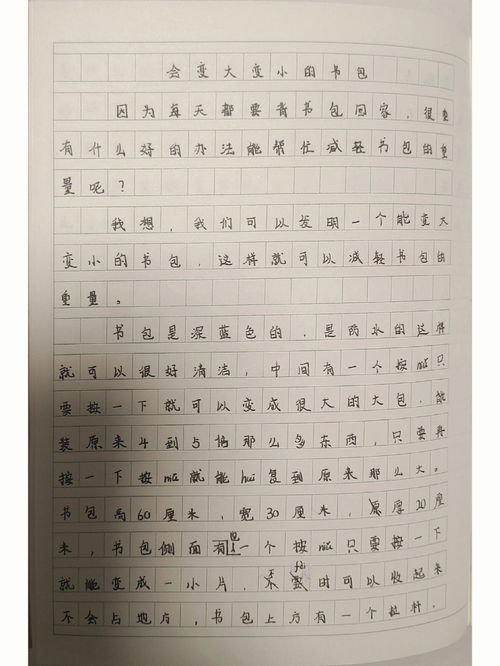 会变大变小的书包
因为每天都要背书包回家，很重
有什么好的办法能帮忙减轻书包的重
量呢？
我想，我们可以发明一个能变大
变小的书包，这样就可以减轻书包的
重量。
书包是深蓝色的，是防水的这样
就可以很好清洁，中间有一个按niǔ只
要按一下就可以变成很大的大包，能
装原来4到5倍那么多东西，只要再
按一下按niǔ就能huī复到原来那么大。
书包高60厘米，宽30厘米，厚20厘
米，书包侧面有一个按niǔ只要按一下
就能变成一小片，不 时可以收起来
不会占地方，书包上方有一个拉杆，